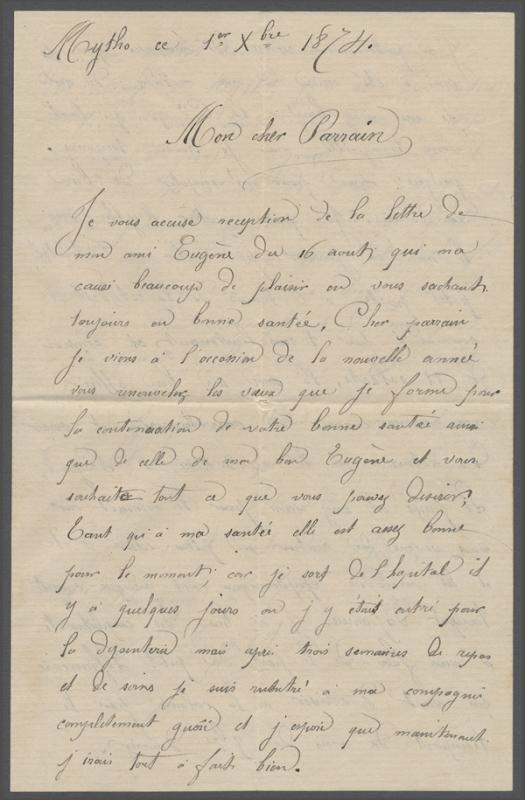 Mytho ce 1er Xbre 1874.
Mon cher Parrain
Je vous accuse reception de la lettre de
mon ami Eugène du 16 aout, qui ma
causé beaucoup de plaisir en vous sachant
toujours en bonne santée, Cher parrain
je viens à l'occasion de la nouvelle année
vous renouvelez les vœux que je forme pour
la continuation de votre bonne santée ainsi
que de celle de mon bon Eugène et vous
souhaite tout ce que vous pouvez désirer;
Tant qu'à ma santée elle est assez bonne
pour le moment; car je sors de l'hopital il
y a quelques jours ou j'y étais entré pour
la dysenterie mais après trois semaines de repos
et de soins je suis rentré à ma compagnie
completement guérie et j'espère que maintenant
j'irais tout à fait bien.